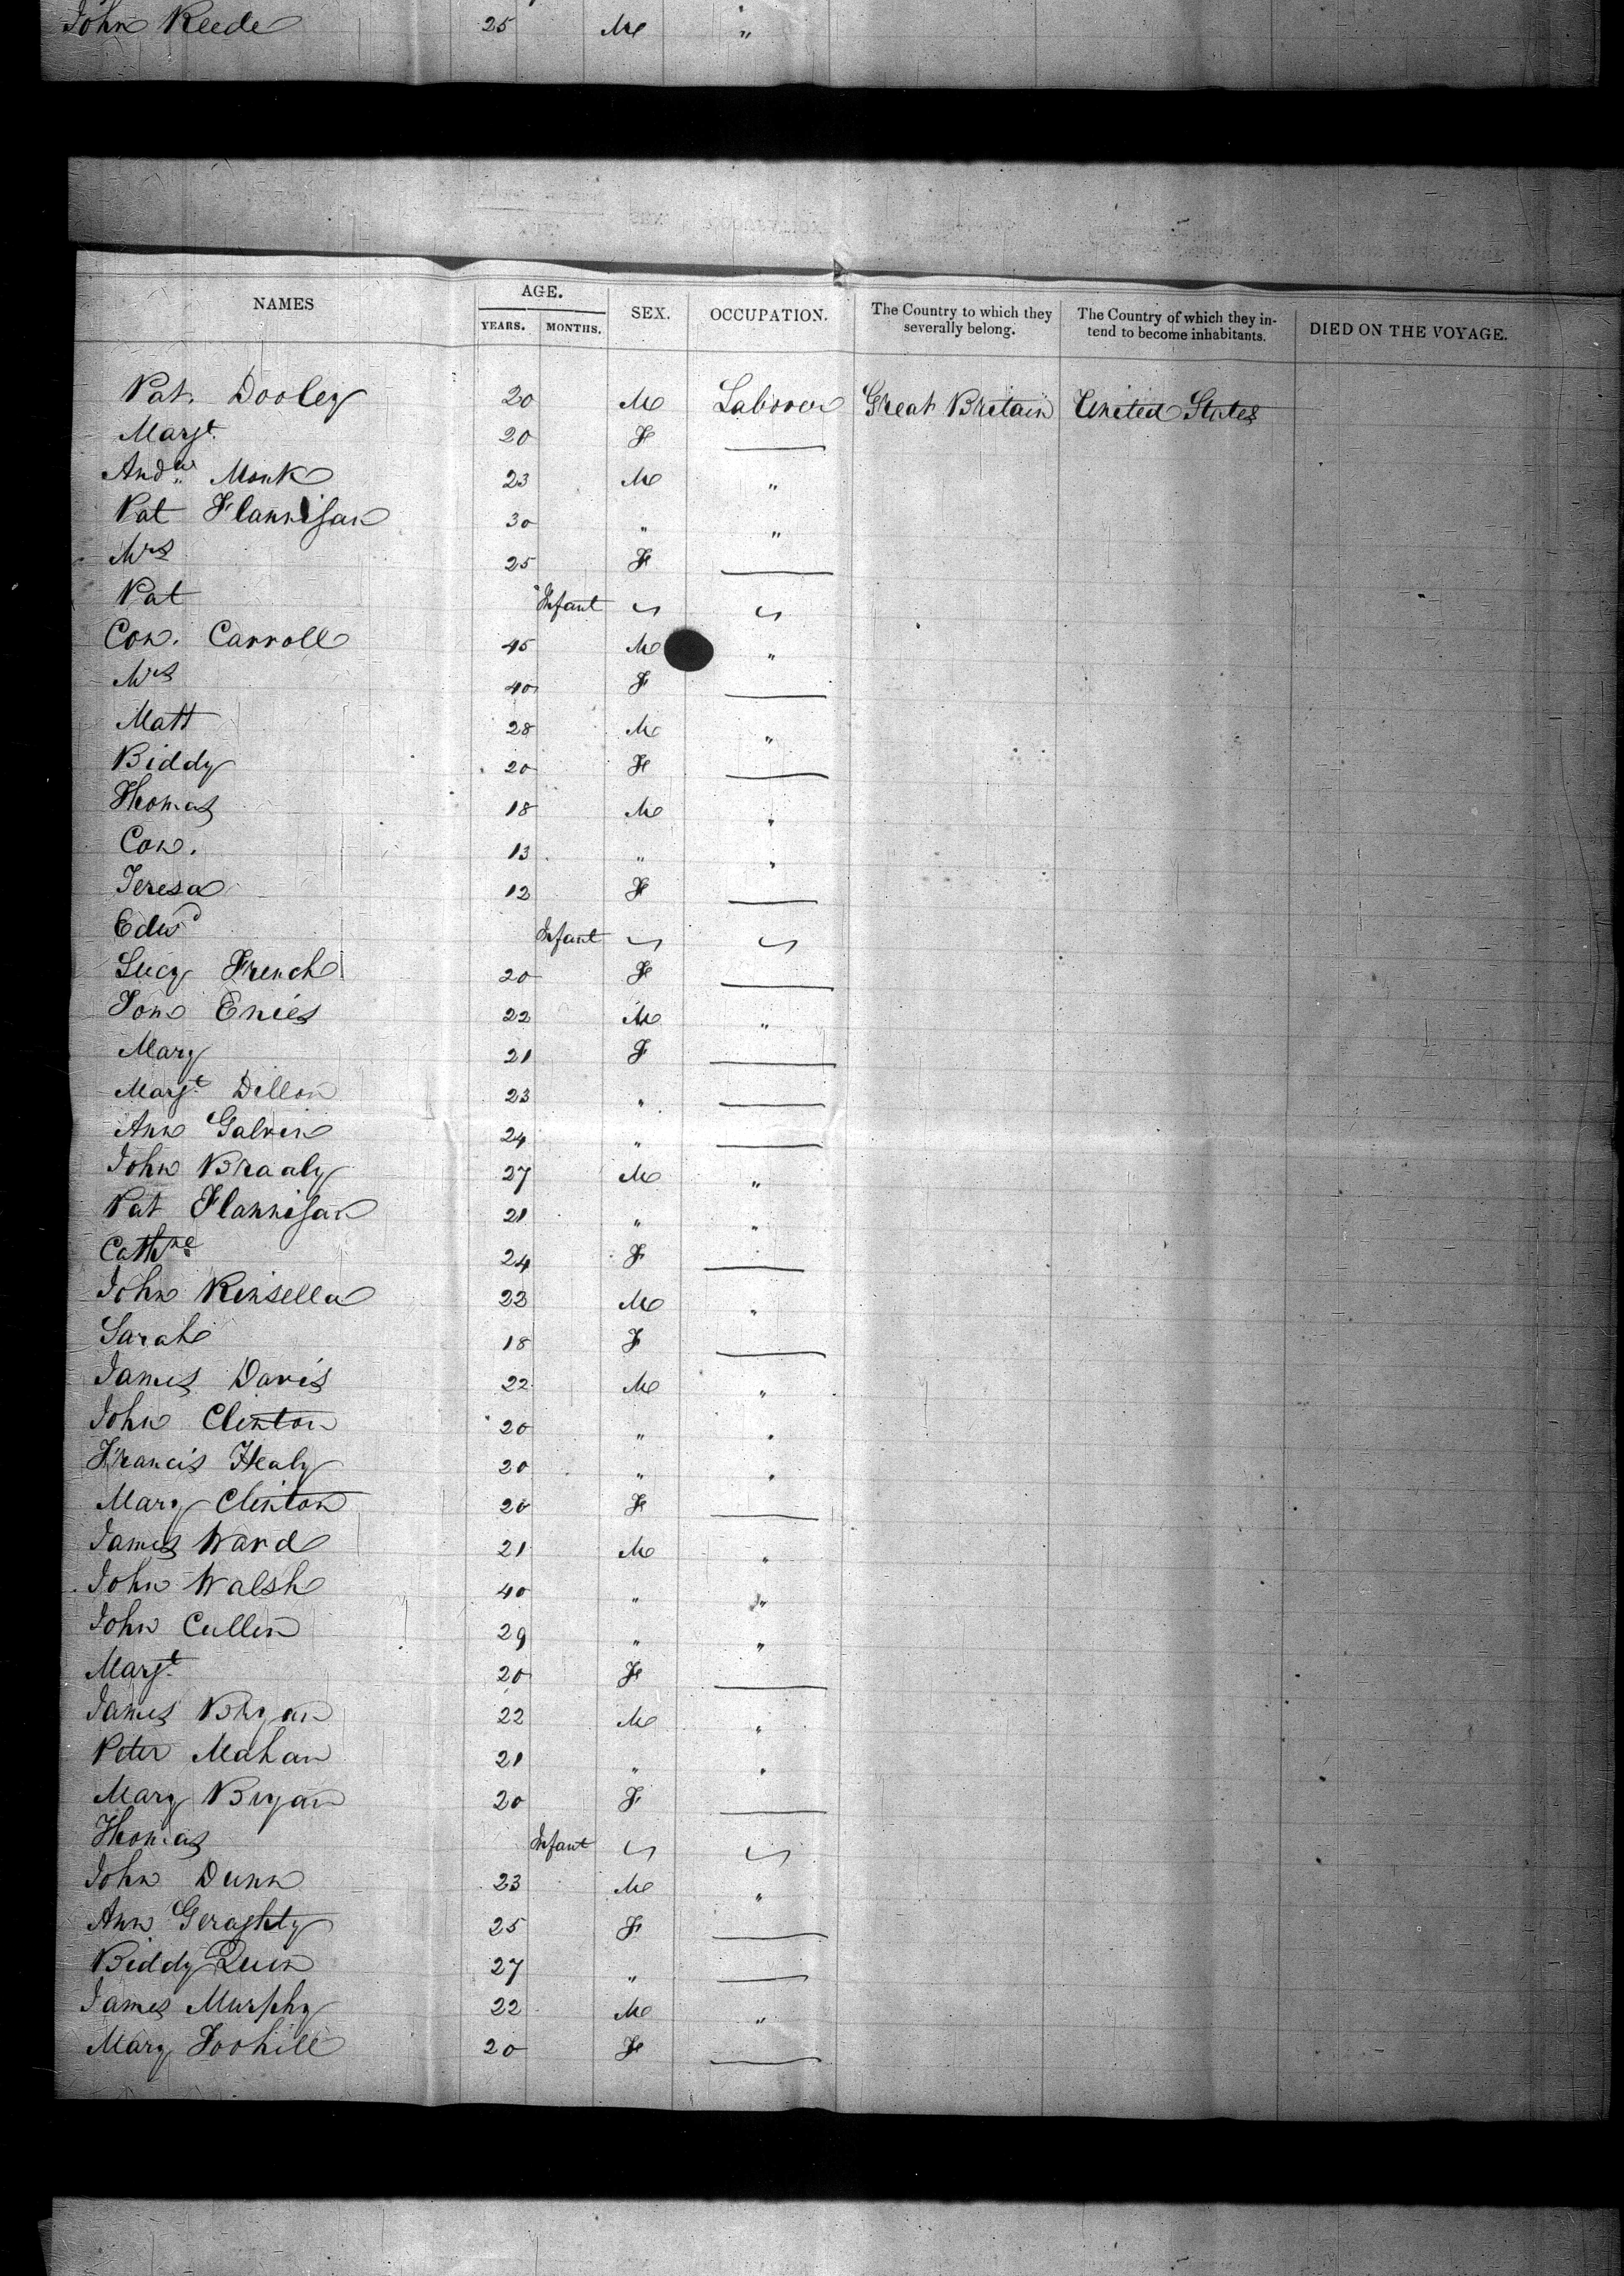 John Reede 25 M "
NAMES AGE. YEARS. MONTHS. SEX. OCCUPATION. The Country to which they severally belong. The Country of which they intend to become inhabitants. DIED ON THE VOYAGE.
Pat. Dooley 20 M Laborer Great Britain United States
Margt. 20 F —
Andw. Monk 23 M "
Pat Flannigan 30 " "
Mrs 25 F —
Pat Infant
Con. Carroll 45 M "
Mrs 40 F —
Matt 28 M "
Biddy 20 F —
Thomas 18 M "
Con. 13 " "
Teresa 12 F —
Edwd Infant
Lucy French 20 F —
Enies 22 M "
Mary 21 F —
Margt. Dillon 23 " —
Ann Galvin 24 " —
John Braaly 27 M "
Pat Flannigan 21 " "
Cathne 24 F —
John Kinsella 22 M "
Sarah 18 F —
James Davis 22 M "
John Clinton 20 " "
Francis Healy 20 " "
Mary Clinton 20 F —
James Ward 21 M "
John Walsh 40 " "
John Cullen 29 " "
Margt. 20 F —
James Bryan 22 M "
Peter Mahan 21 " "
Mary Bryan 20 F —
Thomas Infant
John Dunn 23 M "
Ann Geraghty 25 F —
Biddy Quin 27 " —
James Murphy 22 M "
Mary Toohill 20 F —